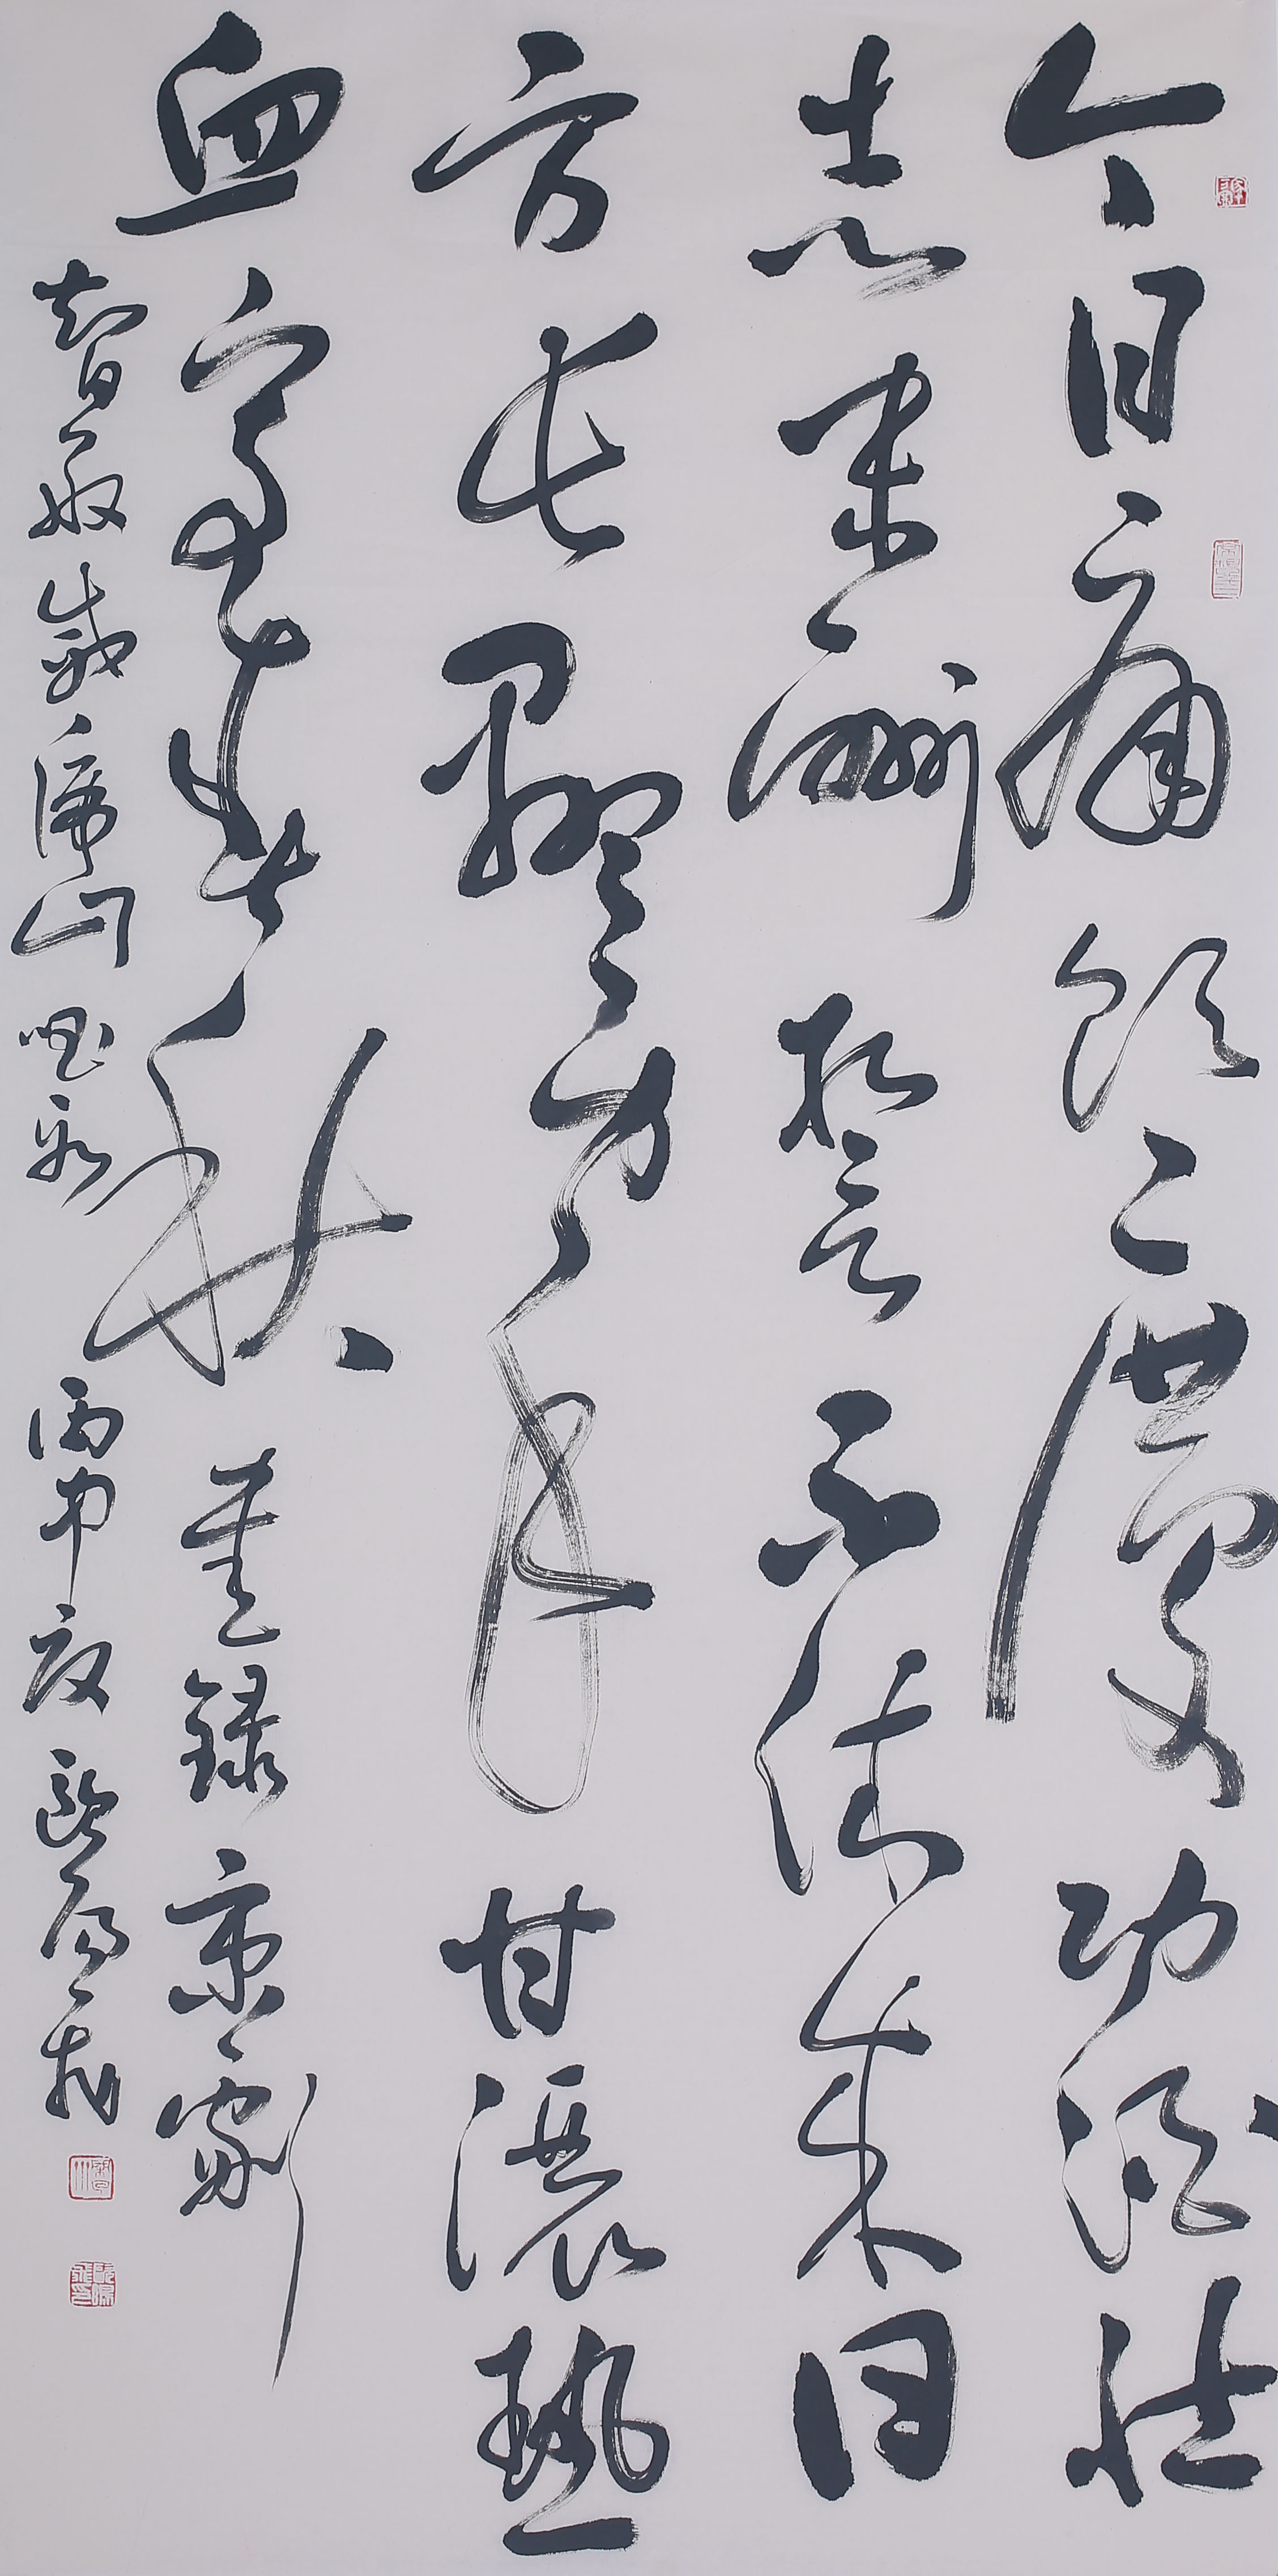 今日痛飲慶功酒壯
志未酬誓不休来日
方長顯身手甘灑熱
血寫春秋 錄京劇
智取威虎山唱段 丙申夏 歐陽